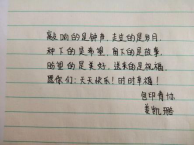 敲响的是钟声，走过的是岁月，
种下的是希望，留下的是故事，
盼望的是美好，送来的是祝福，
愿你们：天天快乐！时时幸福！